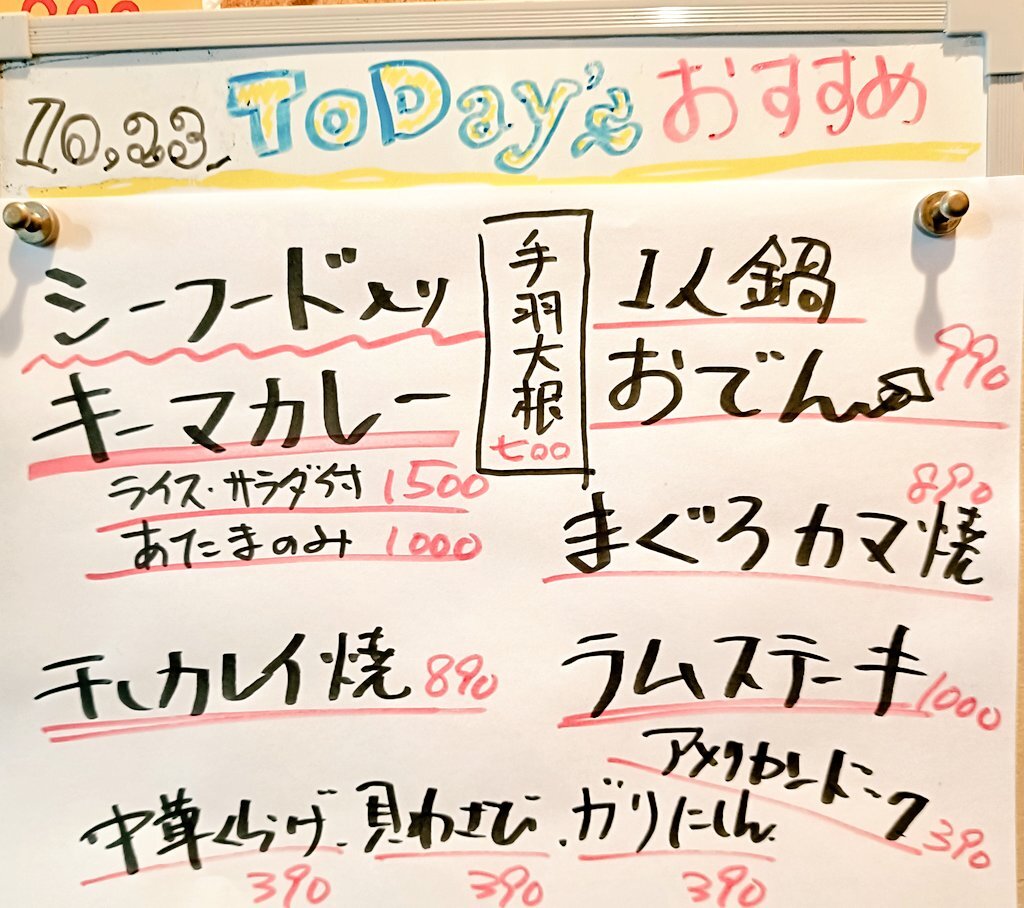 10.23. ToDay's おすすめ
シーフード入り
キーマカレー
ライス・サラダ付 1500
あたまのみ 1000
手羽大根
七00
1人鍋
おでん 990
890
まぐろカマ焼
干しカレイ焼 890
ラムステーキ 1000
アメリカンドーク 390
中華くらげ、貝わさび、ガリにしん
390 390 390